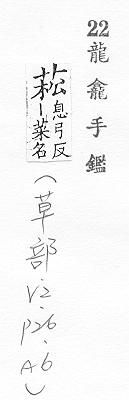 22龍龕手鑑
菘息弓反
䔋｜菜名
(草部、V2、P26、A6)